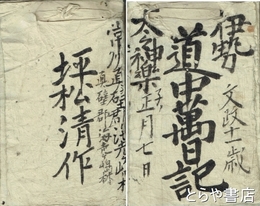 伊勢
文政十一歳
道中萬日記
太々神楽
正月七日
常州
真壁郡
坪松清作
とらや書店